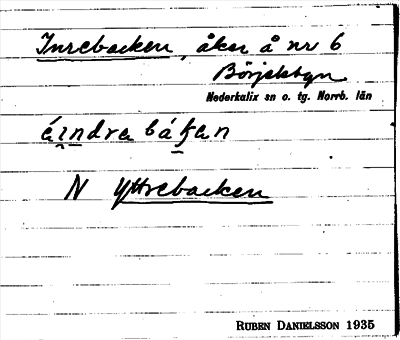 Inrebacken, åker å nr 6
Börjelsbyn
Nederkalix sn o. tg. Norrb. län
N Yttrebacken
RUBEN DANIELSSON 1935